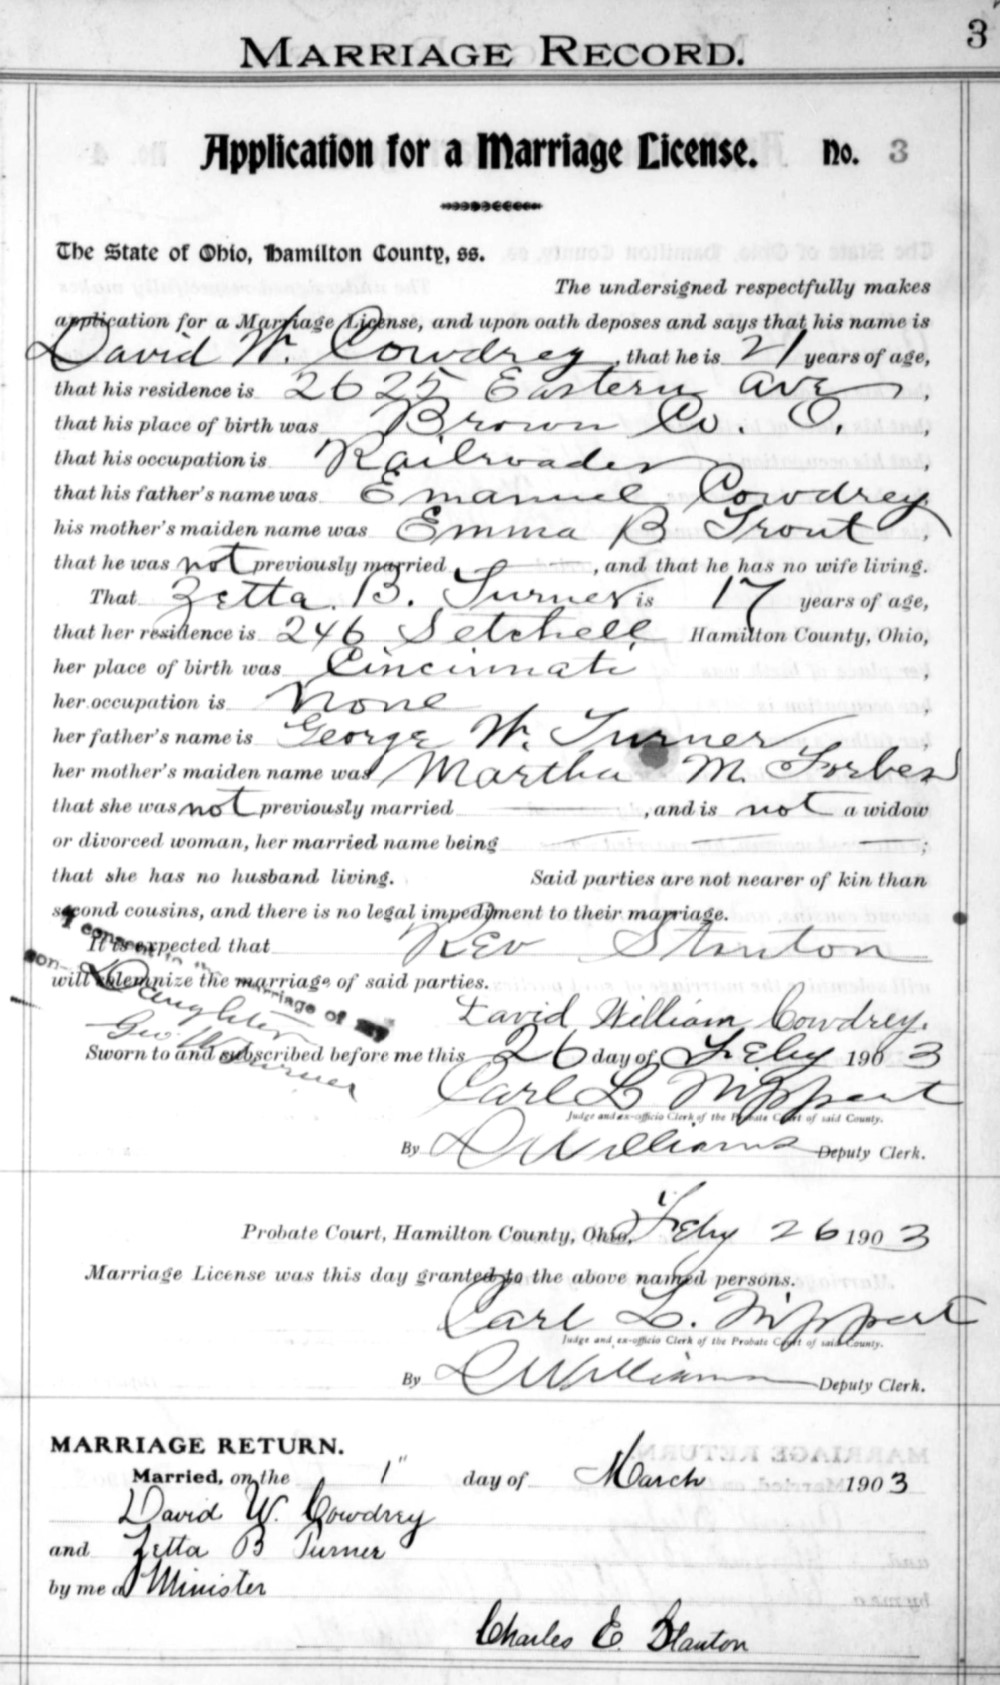 3
MARRIAGE RECORD.
Application for a Marriage License. No. 3
The State of Ohio, Hamilton County, ss.
The undersigned respectfully makes
application for a Marriage License, and upon oath deposes and says that his name is
David W. Cowdrey, that he is 21 years of age,
that his residence is 2625 Eastern Ave,
that his place of birth was Brown Co. O.,
that his occupation is Railroader,
that his father's name was Emanuel Cowdrey,
his mother's maiden name was Emma B Trout,
that he was not previously married, and that he has no wife living.
That Zetta B. Turner is 17 years of age,
that her residence is 246 Setchell Hamilton County, Ohio,
her place of birth was Cincinnati,
her occupation is None,
her father's name is George W. Turner,
her mother's maiden name was Martha M. Forbes
that she was not previously married, and is not a widow
or divorced woman, her married name being ;
that she has no husband living. Said parties are not nearer of kin than
second cousins, and there is no legal impediment to their marriage.
It is expected that Rev Stanton
will solemnize the marriage of said parties.
I consent in the marriage of my
Daughter
Geo W Turner
David William Cowdrey.
Sworn to and subscribed before me this 26 day of Feby 1903
Carl L Nippert
Judge and ex-officio Clerk of the Probate Court of said County.
By D Williams Deputy Clerk.
Probate Court, Hamilton County, Ohio, Feby 26 1903
Marriage License was this day granted to the above named persons.
Carl L. Nippert
Judge and ex-officio Clerk of the Probate Court of said County.
By D Williams Deputy Clerk.
MARRIAGE RETURN.
Married, on the 1" day of March 1903
David W. Cowdrey
and Zetta B Turner
by me a Minister
Charles E. Stanton